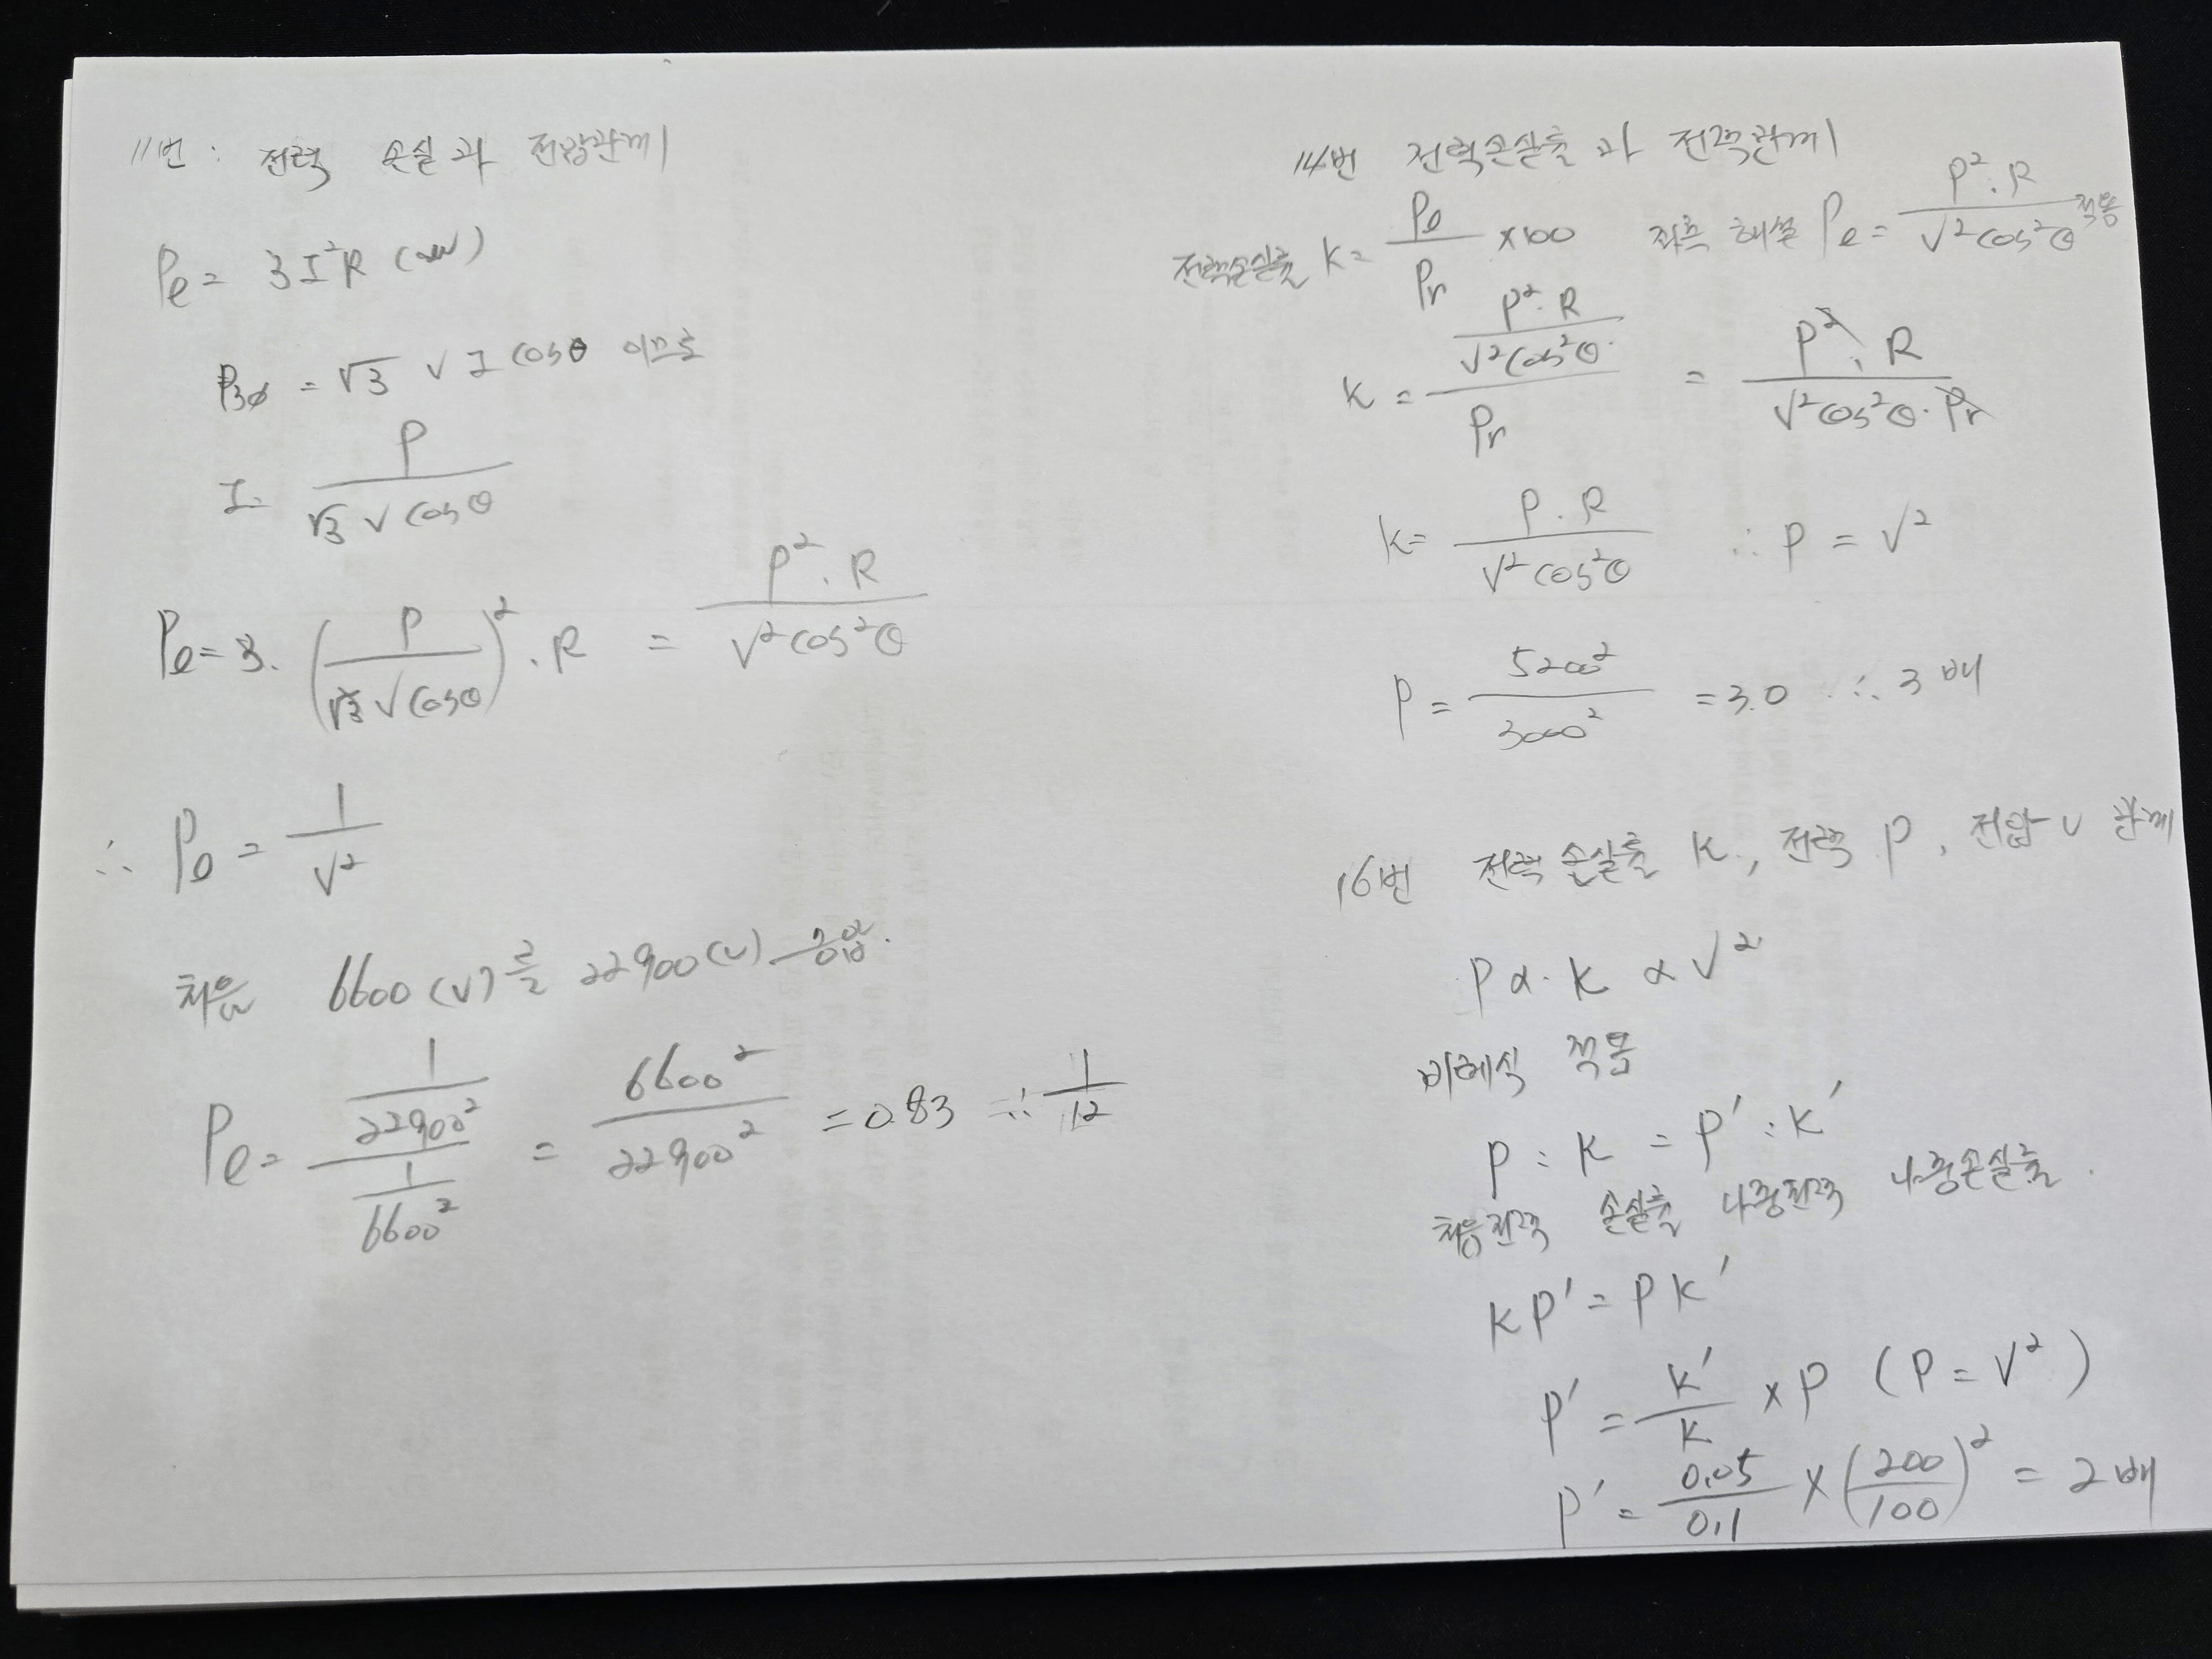 11번 : 전력 손실과 전압관계
Pe = 3I²R (w)
P3ø = √3 V I cosθ 이므로
I = P / √3 V cosθ
Pe = 3 · (P / √3 V cosθ)² · R = P² · R / V² cos²θ
∴ Pe = 1 / V²
처음 6600 (V) 를 22900 (V) 승압.
Pe = (1 / 22900²) / (1 / 6600²) = 6600² / 22900² = 0.83 ∴ 1/12
14번 전력손실률과 전력관계
전력손실률 K = Pe / Pr × 100 좌측 해설 Pe = P² · R / V² cos²θ 적용
K = (P² · R / V² cos²θ) / Pr = P² · R / V² cos²θ · Pr
K = P · R / V² cos²θ ∴ P = V²
P = 5200² / 3000² = 3.0 ∴ 3배
16번 전력 손실률 K, 전력 P, 전압 V 관계
P ∝ K ∝ V²
비례식 적용
P : K = P' : K'
처음전력 손실률 나중전력 나중손실률.
KP' = PK'
P' = K' / K × P (P = V²)
P' = 0.05 / 0.1 × (200 / 100)² = 2배